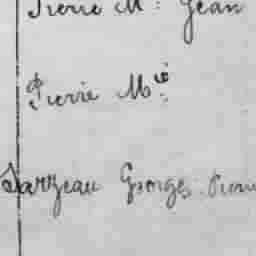 Pierre M. Jean
Pierre Mie
Sarzeau Georges Pierre